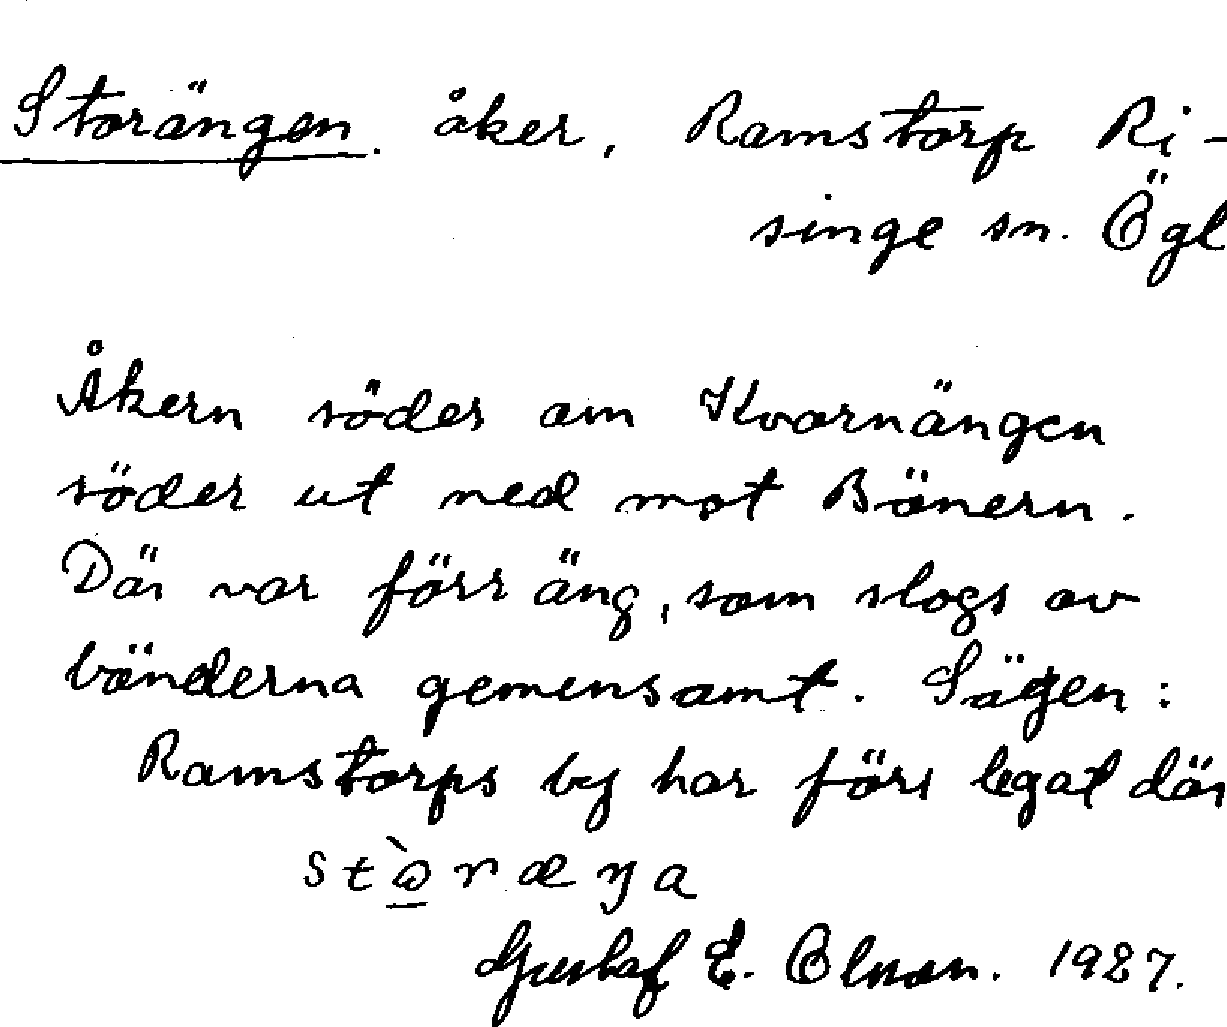 Storängen. åker, Ramstorp Ri-
singe sn. Ögl
Åkern söder om Kvarnängen
söder ut ned mot Bönern.
Där var förr äng, som slogs av
bönderna gemensamt. Sägen:
Ramstorps by har förr legat där
Gustaf E. Olsson. 1927.